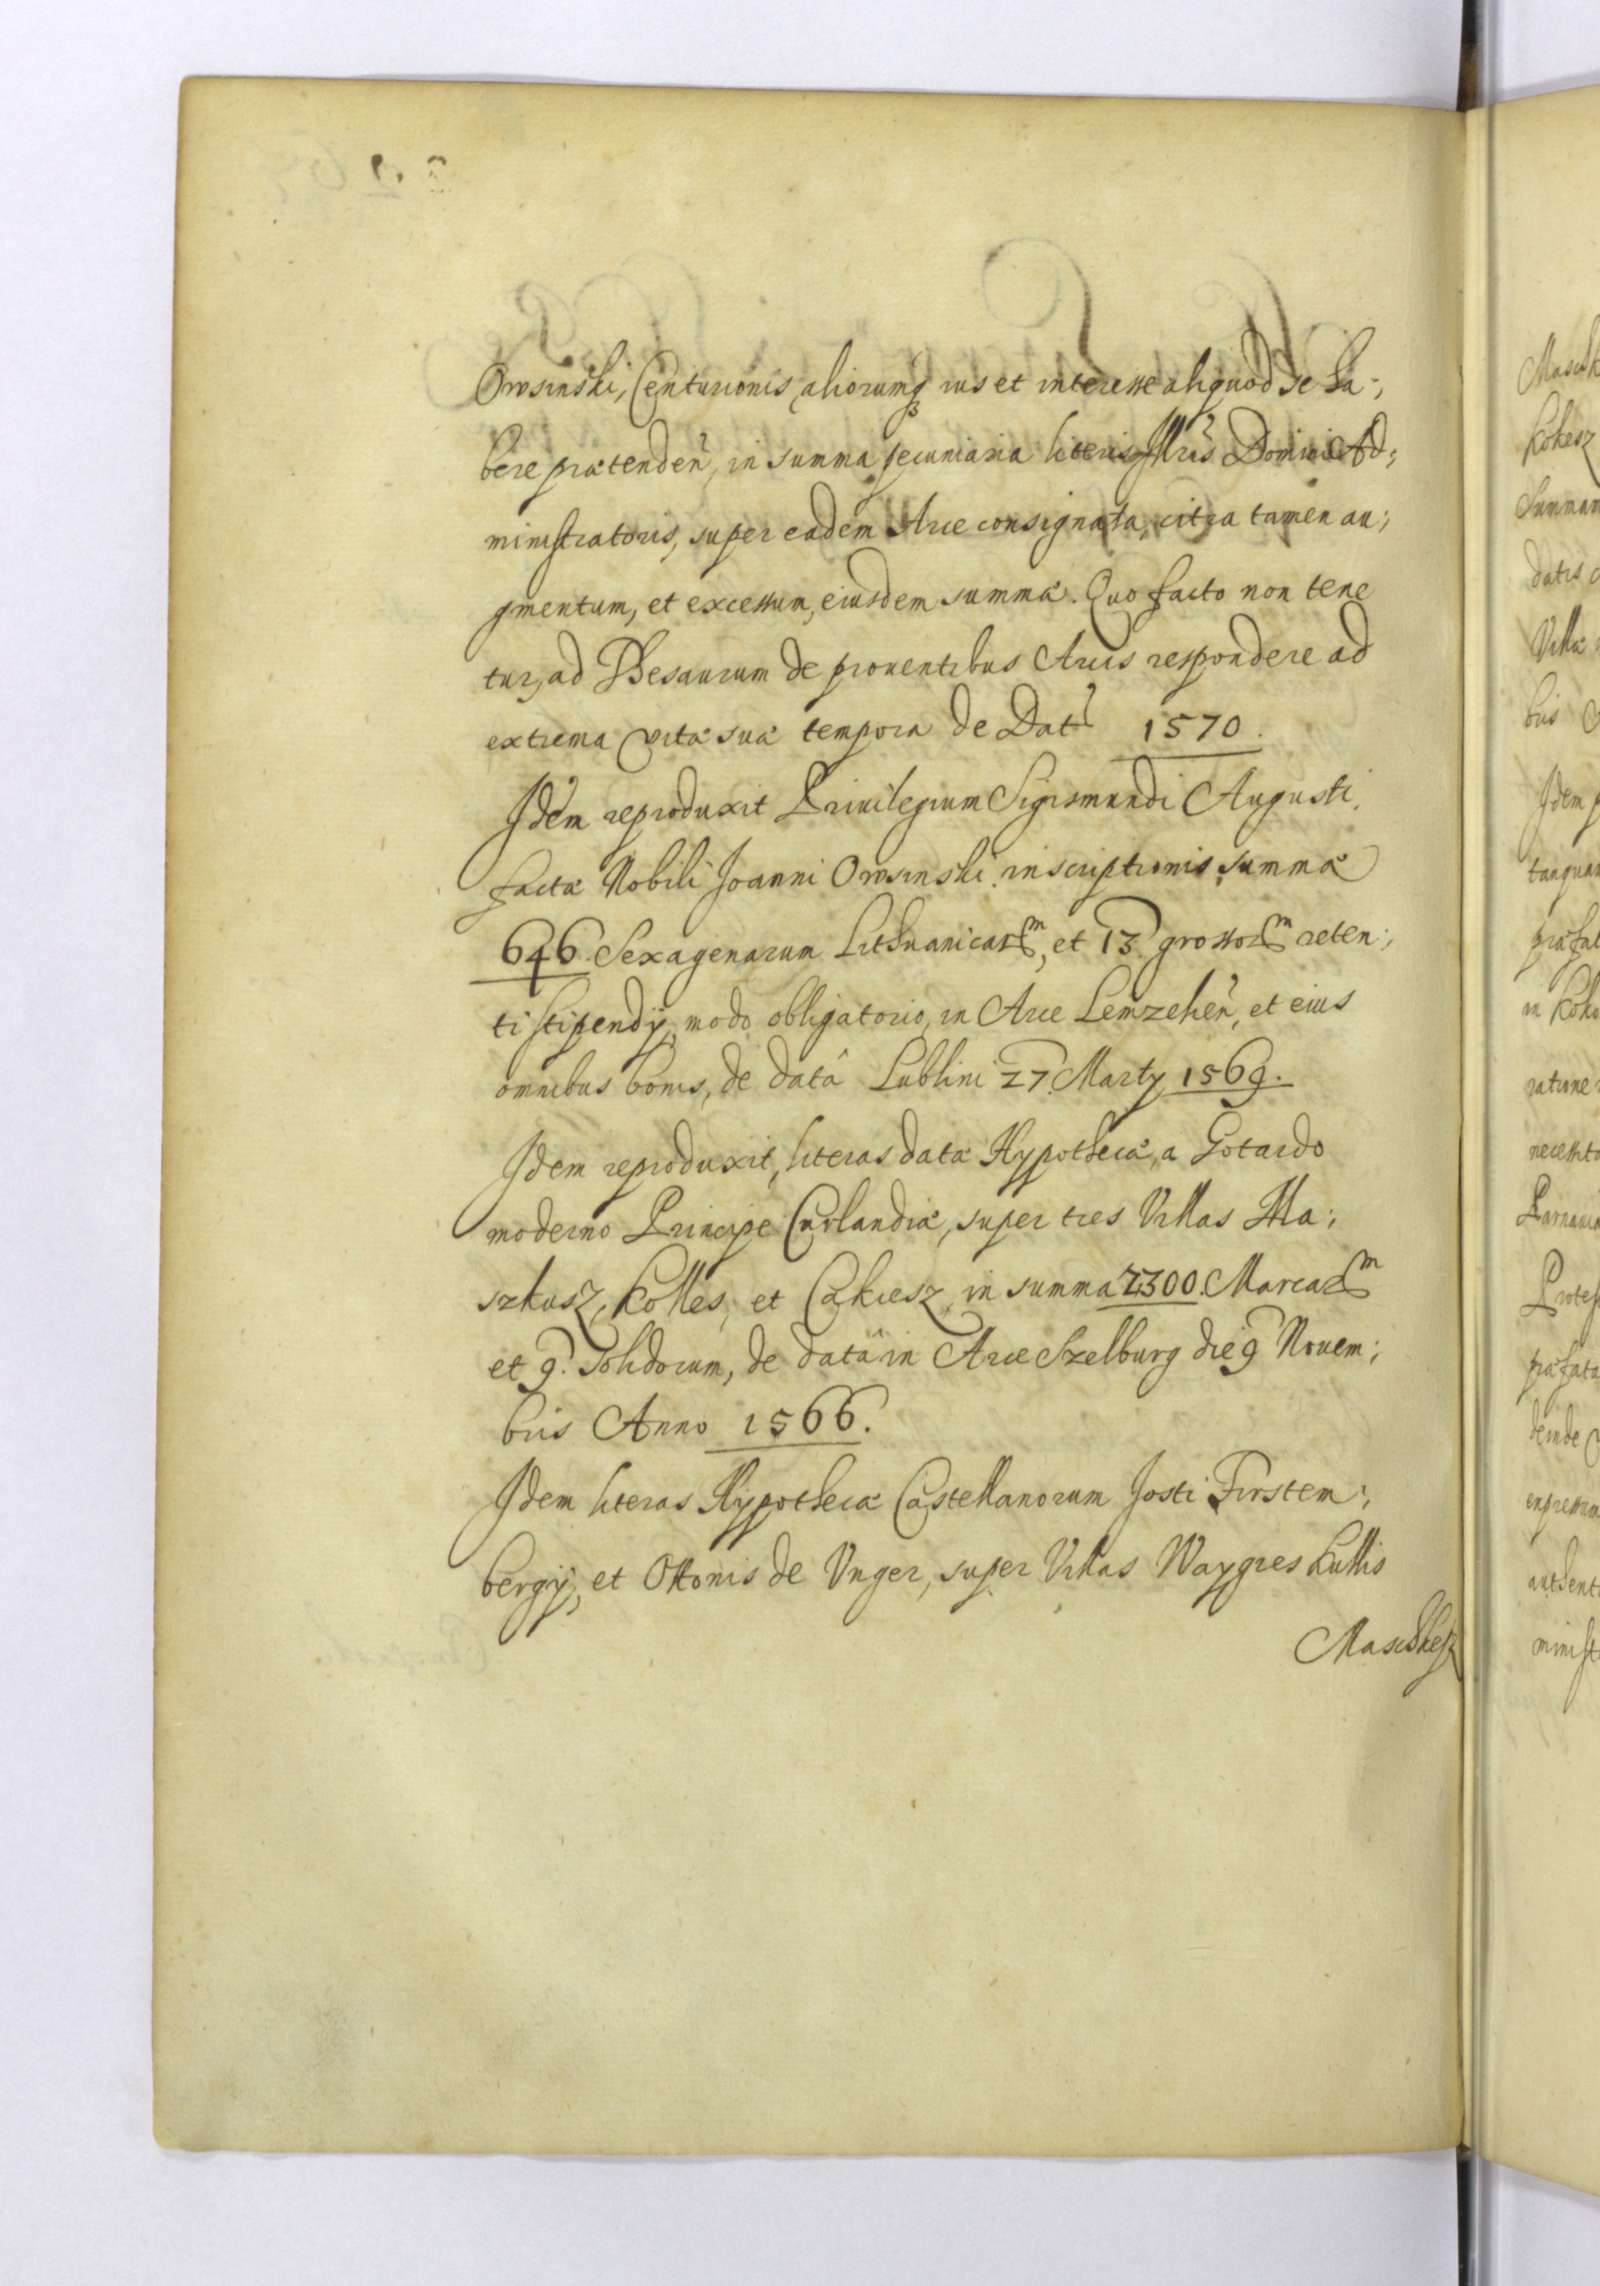 Owsinski, Centurionis, aliorumq ius et interesse aliquod se ha-;
bere prætendeñ, in summa pecuniaria literis Illris Domini Ad;
ministratoris, super eadem Arce consignata, citra tamen au;
gmentum, et excessum, eiusdem summæ. Quo facto non tene
tur, ad Thesaurum de prouentibus Arcis respondere ad
extrema vitæ suæ tempora de Dat 1570.
Idem reproduxit Priuilegium Sigismundi Augusti,
factæ Nobili Joanni Owsinski inscriptionis summæ
646. Sexagenarum Lithuanicarm, et 13. grossorm reten;
ti stipendij, modo obligatorio, in Arce Lemzeheñ, et eius
omnibus bonis, de datâ Lublini 27. Marty 1569.
Idem reproduxit, literas datæ Hypothecæ, a Gotardo
moderno Principe Curlandiæ, super tres Villas Ma;
szkusz, Kolles, et Cakiesz, in summa 2300. Marcarm
et 9. solidorum, de datâ in Arce Szelburg die 9 Nouem;
bris Anno 1566.
Idem literas Hypothecæ Castellanorum Josti Firstem;
bergij, et Ottonis de Vnger, super Villas Waygres Kullis